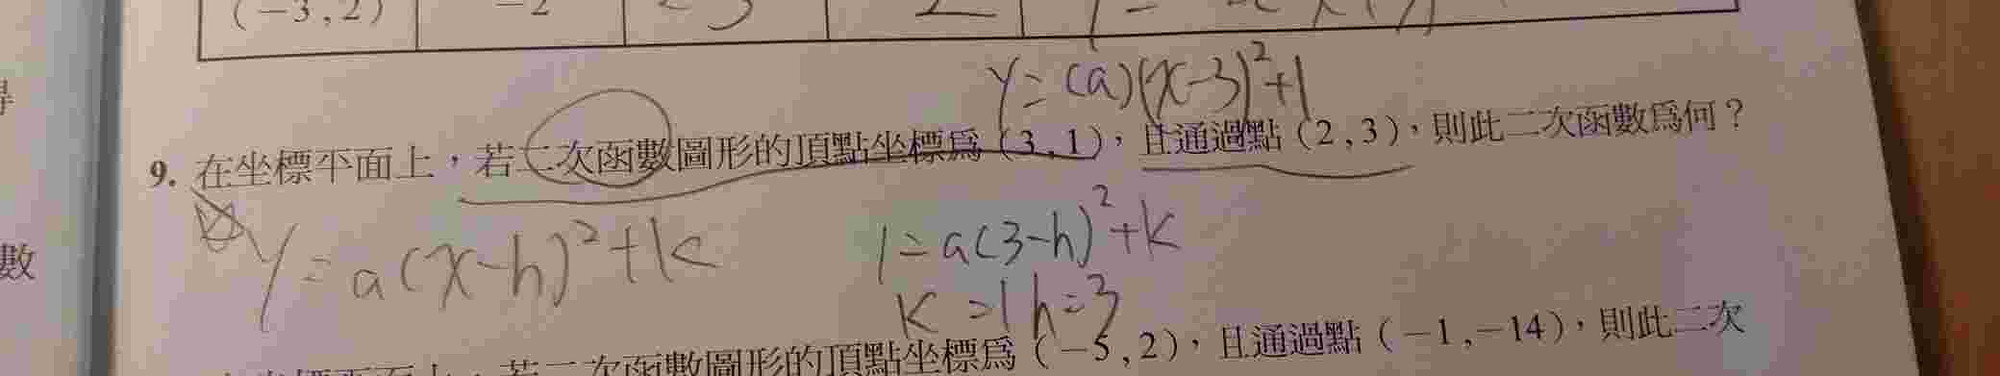 (-3,2) -2
y=(a)(x-3)²+1
9. 在坐標平面上，若二次函數圖形的頂點坐標為(3,1)，且通過點(2,3)，則此二次函數為何？
y=a(x-h)²+k
1=a(3-h)²+k
k=1 h=3
若二次函數圖形的頂點坐標為(-5,2)，且通過點(-1,-14)，則此二次
數